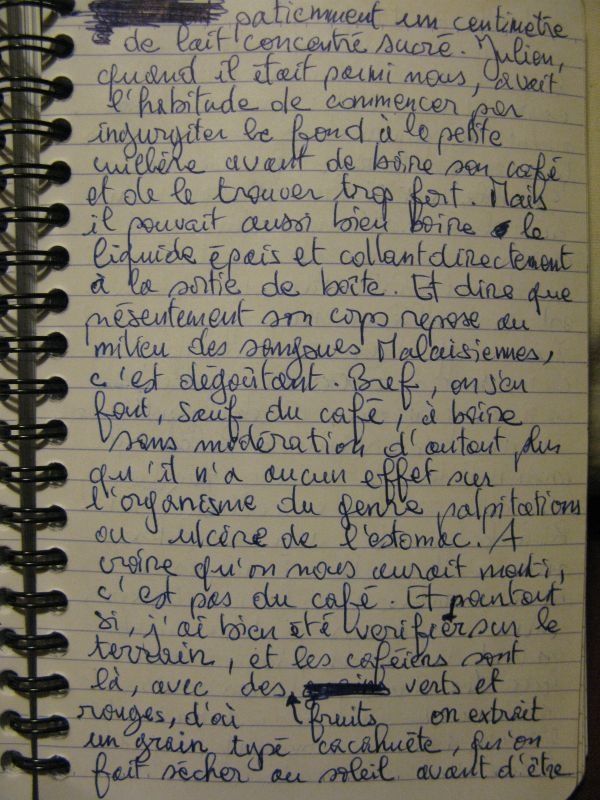 patiemment un centimètre
de lait concentré sucré. Julien,
quand il était parmi nous, avait
l'habitude de commencer par
ingurgiter le fond à la petite
cuillère avant de boire son café
et de le trouver trop fort. Mais
il pouvait aussi bien boire le
liquide épais et collant directement
à la sortie de boîte. Et dire que
présentement son corps repose au
milieu des sangsues Malaisiennes,
c'est dégoûtant. Bref, on s'en
fout, sauf du café, à boire
sans modération d'autant plus
qu'il n'a aucun effet sur
l'organisme du genre palpitations
ou ulcère de l'estomac. A
croire qu'on nous aurait menti,
c'est pas du café. Et pourtant
si, j'ai bien été vérifier sur le
terrain, et les caféiers sont
là, avec des verts et
rouges, d'où fruits on extrait
un grain typé cacahuète, qu'on
fait sécher au soleil avant d'être